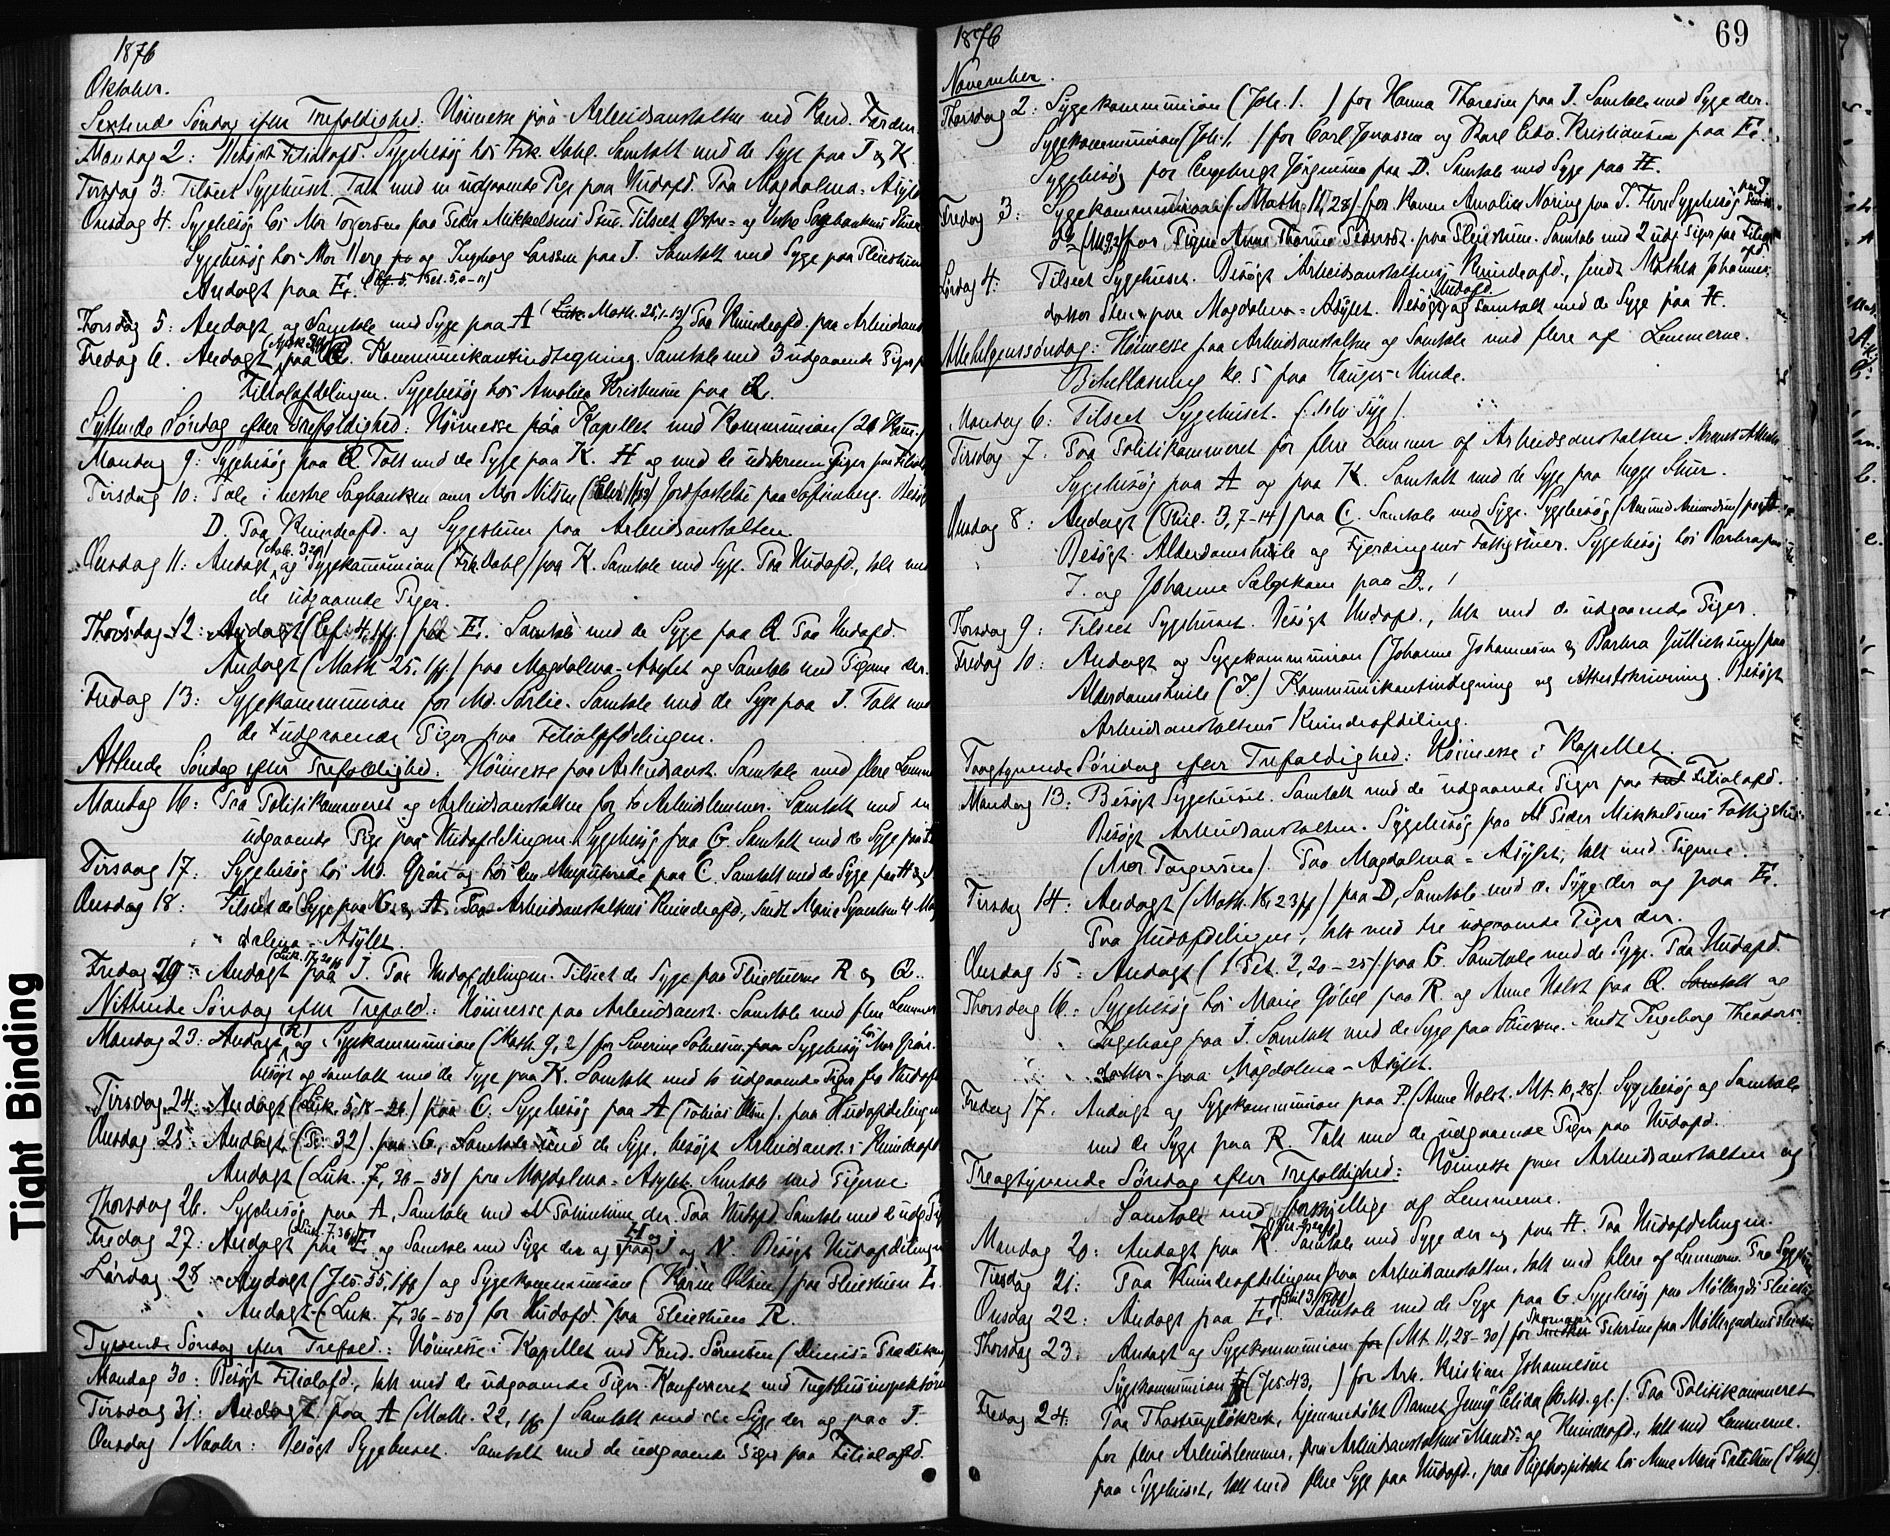 1876
Oktober.
Sextende Søndag efter Trefoldighed. Høimesse paa Arbeidsanstalten ved Kand. Farden.
Mandag 2: Besøgt Filialafd. Sygebesøg hos Frk. Dahl. Samtalt med de Syge paa I & K.
Tirsdag 3: Tilseet Sygehuset. Talt med en udgaaende Pige paa Hudafd. Paa Magdalena-Asylet
Onsdag 4. Sygebesøg hos Mor Torgersen paa Peder Mikkelsens Stue. Tilseet Østre- og Vestre Sagbankens Stuer
Sygebesøg hos Mor Berg og Ingeborg Larssen paa I. Samtalt med Syge paa Pleiestuen
Andagt paa E.
Torsdag 5: Andagt og Samtale med Syge paa A (Math. 25,1-13) Paa Kvindeafd. paa Arbeidsanst
Fredag 6. Andagt paa Q. Kommunikantindtegning. Samtale med 3 udgaaende Piger p
Filialafdelingen. Sygebesøg hos Amalia Kristensen paa Q.
Syttende Søndag efter Trefoldighed: Høimesse paa Kapellet med Kommunion (26 Kom.)
Mandag 9: Sygebesøg paa Q. Talt med de Syge paa K. H og med de udskrevne Piger paa Filial
Tirsdag 10: Tale i vestre Sagbanken over Mor Nilsen Jordfæstelse paa Sofienberg. Besøg
D. Paa Kvindeafd. og Sygestuen paa Arbeidsanstalten.
Onsdag 11: Andagt og Sygekommunion (Frk. Dahl) paa K. Samtale med Syge. Paa Hudafd., talt med
de udgaaende Piger.
Thorsdag 12: Andagt (Ef. 4,1ff.) paa E. Samtale med de Syge paa Q. Paa Hudafd.
Andagt (Math 25. 1ff) paa Magdalena-Asylet og Samtale med Pigerne der.
Fredag 13: Sygekommunion for Md. Sørlie. Samtale med de Syge paa I. Talt med
de udgaaende Piger paa Filialafdelingen.
Attende Søndag efter Trefoldighed. Høimesse paa Arbeidsanst. Samtale med flere Lemmer
Mandag 16: Paa Politikammeret og Arbeidsanstalten for to Arbeidslemmer. Samtalt med en
udgaaende Pige paa Hudafdelingen. Sygebesøg paa G. Samtalt med de Syge paa
Tirsdag 17. Sygebesøg hos Md. Grøn og hos den Amputerede paa C. Samtalt med de Syge paa H &
Onsdag 18: Tilseet de Syge paa G. & A. Paa Arbeidsanstaltens Kvindeafd., sendt Marie Syversen til Mag
dalena-Asylet.
Fredag 20: Andagt paa I. Paa Hudafdelingen. Tilseet de Syge paa Pleiestuerne R & Q.
Nittende Søndag efter Trefold.: Høimesse paa Arbeidsanst. Samtale med flere Lemmer
Mandag 23: Andagt (R) og Sygekommunion (Math. 9,2) for Severine Solvesen. Sygebesøg hos Mor Grøn.
besøgt og samtalt med de Syge paa K. Samtalt med to udgaaende Piger fra Hudafd
Tirsdag 24: Andagt (Luk. 5,18-26) paa C. Sygebesøg paa A (Tobias Olsen). paa Hudafdelingen
Onsdag 25: Andagt (Ps. 32) paa G, Samtale med de Syge, besøgt Arbeidsanst.s Kvindeafd.
Andagt (Luk. 7, 30-50) paa Magdalena-Asylet. Samtale med Pigerne.
Thorsdag 26. Sygebesøg paa A, Samtale med Patienterne der. Paa Hudafd. Samtale med 2 udg. Pig
Fredag 27: Andagt paa E. og Samtale med Syge der og H og I og N. Besøgt Hudafdelingen
Lørdag 28 Andagt (Jes. 55,1ff) og Sygekommunion (Karen Olsen) paa Pleiestuen L.
Andagt (Luk. 7,36-50) for Hudafd. paa Pleiestuen R.
Tyvende Søndag efter Trefold.: Høimesse i Kapellet ved Kand. Sørensen
Mandag 30: Besøgt Filialafd., talt med de udgaaende Piger. Konfereret med Tugthusinspektøren
Tirsdag 31: Andagt paa A (Math. 22,1ff) Samtalt med de Syge der og paa I.
Onsdag 1 Novbr: Besøgt Sygehuset. Samtalt med de udgaaende Piger paa Filialafd.
1876
69
November.
Thorsdag 2: Sygekommunion (Joh. 1. ) for Hanna Thoresen paa I. Samtale med Syge der.
Sygekommunion (Joh. 1, ) for Carl Jonassen og Karl Edv. Kristiansen paa E.
Sygebesøg for Engebregt Jørgensen paa D. Samtale med Syge paa H.
Fredag 3: Sygekommunion (Math. 11,28) for Karen Amalie Næring paa I. Flere Sygebesøg
Do (M. 9,2) for Signe Anne Thorine Pedersdt. paa Pleiestuen. Samtale med 2 udg. Piger paa Filial
afd.
Lørdag 4: Tilseet Sygehuset. Besøgt Arbeidsanstaltens Kvindeafd., sendt Mathea Johannes-
datter Steen paa Magdalena-Asylet. Besøgt Hudafd. og samtalt med de Syge paa H.
Allehelgenssøndag: Høimesse paa Arbeidsanstalten og Samtale med flere af Lemmerne.
Bibellæsning kl. 5 paa Hauges Minde.
Mandag 6: Tilseet Sygehuset. (selv syg).
Tirsdag 7. Paa Politikammeret for flere Lemmer af Arbeidsanstalten.
Sygebesøg paa A og paa K. Samtalt med de Syge paa begge Stuer.
Onsdag 8: Andagt (Phil. 3, 7-14) paa C. Samtale med Syge. Sygebesøg (Amund Amundsen) paa A.
Besøgt Alderdomshvile og Fjerdingens Fattigstuer. Sygebesøg hos Barbra paa
I. og Johanne Salgskone paa B.
Thorsdag 9: Tilseet Sygehuset. Besøgt Hudafd., talt med de udgaaende Piger.
Fredag 10: Andagt og Sygekommunion (Johanne Johannesen & Barbra Gulliksen) paa
Alderdomshvile (I.) Kommunikantindtegning og Attestskrivning. Besøgt
Arbeidsanstaltens Kvindeafdeling.
Toogtyvende Søndag efter Trefoldighed: Høimesse i Kapellet.
Mandag 13: Besøgt Sygehuset. Samtalt med de udgaaende Piger paa Filialafd.
Besøgt Arbeidsanstalten. Sygebesøg paa Peder Mikkelsens Fattigstue
(Mor Torgersen). Paa Magdalena-Asylet, talt med Pigerne.
Tirsdag 14: Andagt (Math. 18,23ff) paa D, Samtale med de Syge der og paa E.
Paa Hudafdelingen, talt med tre udgaaende Piger der.
Onsdag 15: Andagt (1 Pet. 2,20-25) paa G. Samtale med de Syge. Paa Hudafd.
Thorsdag 16: Sygebesøg hos Marie Gøbel paa R. og Anne Holst paa Q. Samtalt og
Ingeborg paa I. Samtalt med de Syge paa Stuerne. Sendt Ingeborg Theodors-
datter paa Magdalena-Asylet.
Fredag 17. Andagt og Sygekommunion paa P. (Anne Holst. Mt. 11,28). Sygebesøg og Samtale
med de Syge paa R. Talt med de udgaaende Piger paa Hudafd.
Treogtyvende Søndag efter Trefoldighed: Høimesse paa Arbeidsanstalten og
Samtale med forskjellige af Lemmerne.
Mandag 20: Andagt paa K. Samtale med Syge der og paa H. Paa Hudafdelingen.
Tirsdag 21: Paa Kvindeafdelingen paa Arbeidsanstalten, talt med flere af Lemmerne.
Onsdag 22: Andagt paa E. Samtale med de Syge paa G. Sygebesøg paa Møllergds Pleiestue
Thorsdag 23. Andagt og Sygekommunion (Mt. 11,28-30) for Skomager Pehrsen paa Møllergadens Pleiestue
Sygekommunion (Jes. 43, ) for Arb. Kristian Johannesen
Fredag 24: Paa Thostrupløkken, hjemmedøbt Barnet Jenny Elida. Paa Politikammeret
for flere Arbeidslemmer, paa Arbeidsanstaltens Mands- og Kvindeafd., talt med Lemmerne.
paa Sygehuset, talt med flere Syge paa Hudafd., paa Rigshospitalet hos Anne Marie
Tight Binding